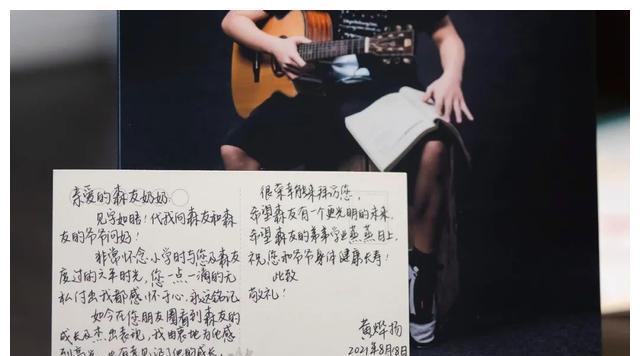 亲爱的森友奶奶
见字如晤！代我问森友和森
友的爷爷问好！
非常怀念小学时与您及森友
度过的六年时光，您一点一滴的无
私付出我都感怀于心，永远铭记
如今在您朋友圈看到森友的
成长及杰出表现，我由衷地为他感
很荣幸能来拜访您，
希望森友有一个更光明的未来，
希望森友的弟弟学业蒸蒸日上，
祝您和爷爷身体健康长寿！
此致
敬礼！
黄烨杨
2021年8月8日